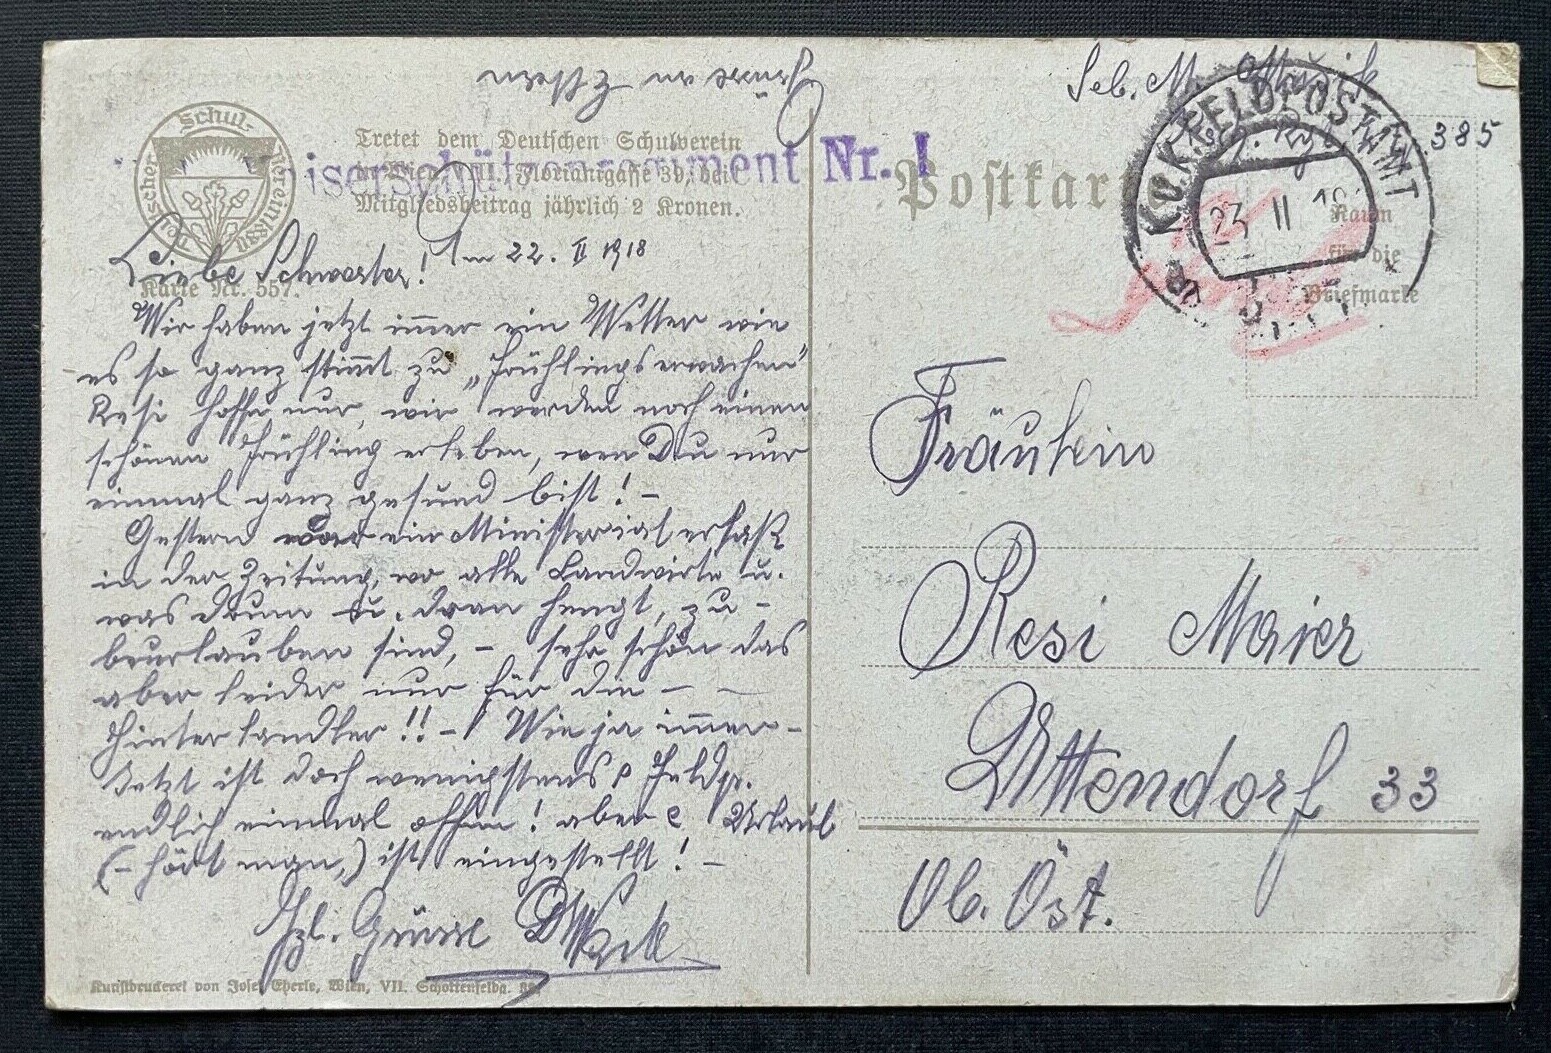 Grüsse an Eltern
Schul-
Deutscher
Verein 1880
Tretet dem Deutschen Schulverein
in Wien, Florianigasse 39, bei.
Mitgliedsbeitrag jährlich 2 Kronen.
Karte Nr. 557.
iserschützenregiment Nr. I
Liebe Schwester! Am 22. II 1918
Wir haben jetzt immer ein Wetter wie
es so ganz stimmt zu „Frühlingserwachen"
Resi hoffe nur, wir werden noch einen
schönen Frühling erleben, wen Du nur
einmal ganz gesund bist! –
Gestern war ein Ministerialerlaß
in der Zeitung, wo alle Landwirte u.
was drum u. dran hengt, zu-
beurlauben sind, – sehr schön das
aber leider nur für die –
Hinterlandler!! – Wie ja immer –
Jetzt ist doch wenigstens Feldp.
endlich einmal offen! aber Urlaub
(– hört man,) ist eingestellt! –
Hzl. Grüsse
Kunstdruckerei von Josef Eberle, Wien, VII. Schottenfeldg.
Postkar
Seb. M.
385
K.u.K. FELDPOSTAMT
23 II 18
a
Raum
für die
Briefmarke
Fräulein
Resi Maier
Uttendorf 33
Ob. Öst.